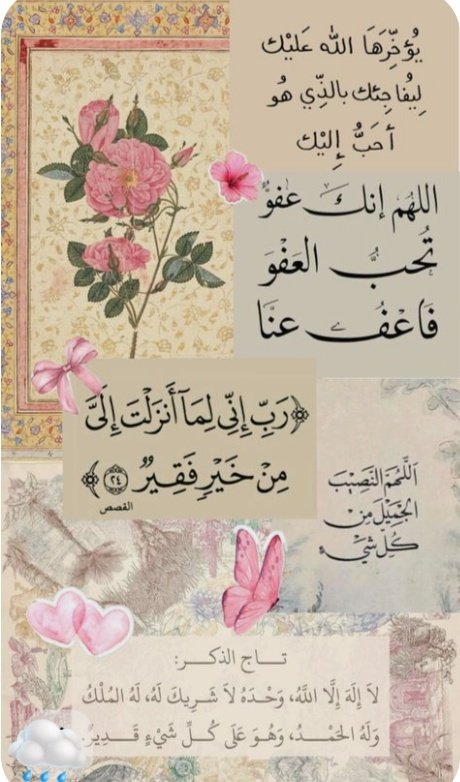 يُؤخِّرهَا الله عَليْك
لِيُفاجِئك بالذِّي هُو
أحَبُّ إِليْك
اللهُم إنكَ عَفوٌّ
تُحبُّ العَفْوَ
فَاعْفُ عنَّا
﴿رَبِّ إِنِّي لِمَآ أَنزَلْتَ إِلَىَّ
مِنْ خَيْرٍ فَقِيرٌ ٢٤﴾
القصص
اَللَّهُمَّ النَّصِيْبَ
الجَمِيْلَ مِن
كُلِّ شَيْءٍ
تـاج الذكـر:
لاَ إِلَهَ إِلَّا اللَّهُ، وَحْدَهُ لاَ شَرِيكَ لَهُ، لَهُ المُلْكُ
وَلَهُ الحَمْدُ، وَهُوَ عَلَى كُلِّ شَيْءٍ قَدِيرٌ.